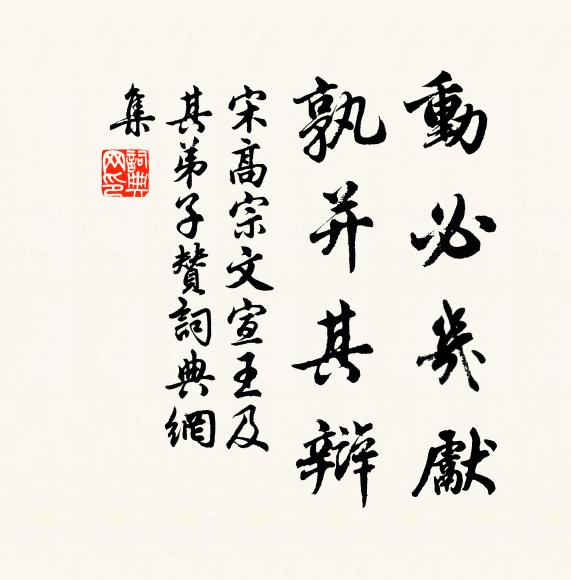 動必幾獻
孰并其辯
宋高宗文宣王及
其弟子贊詞典網
集
詞典網印